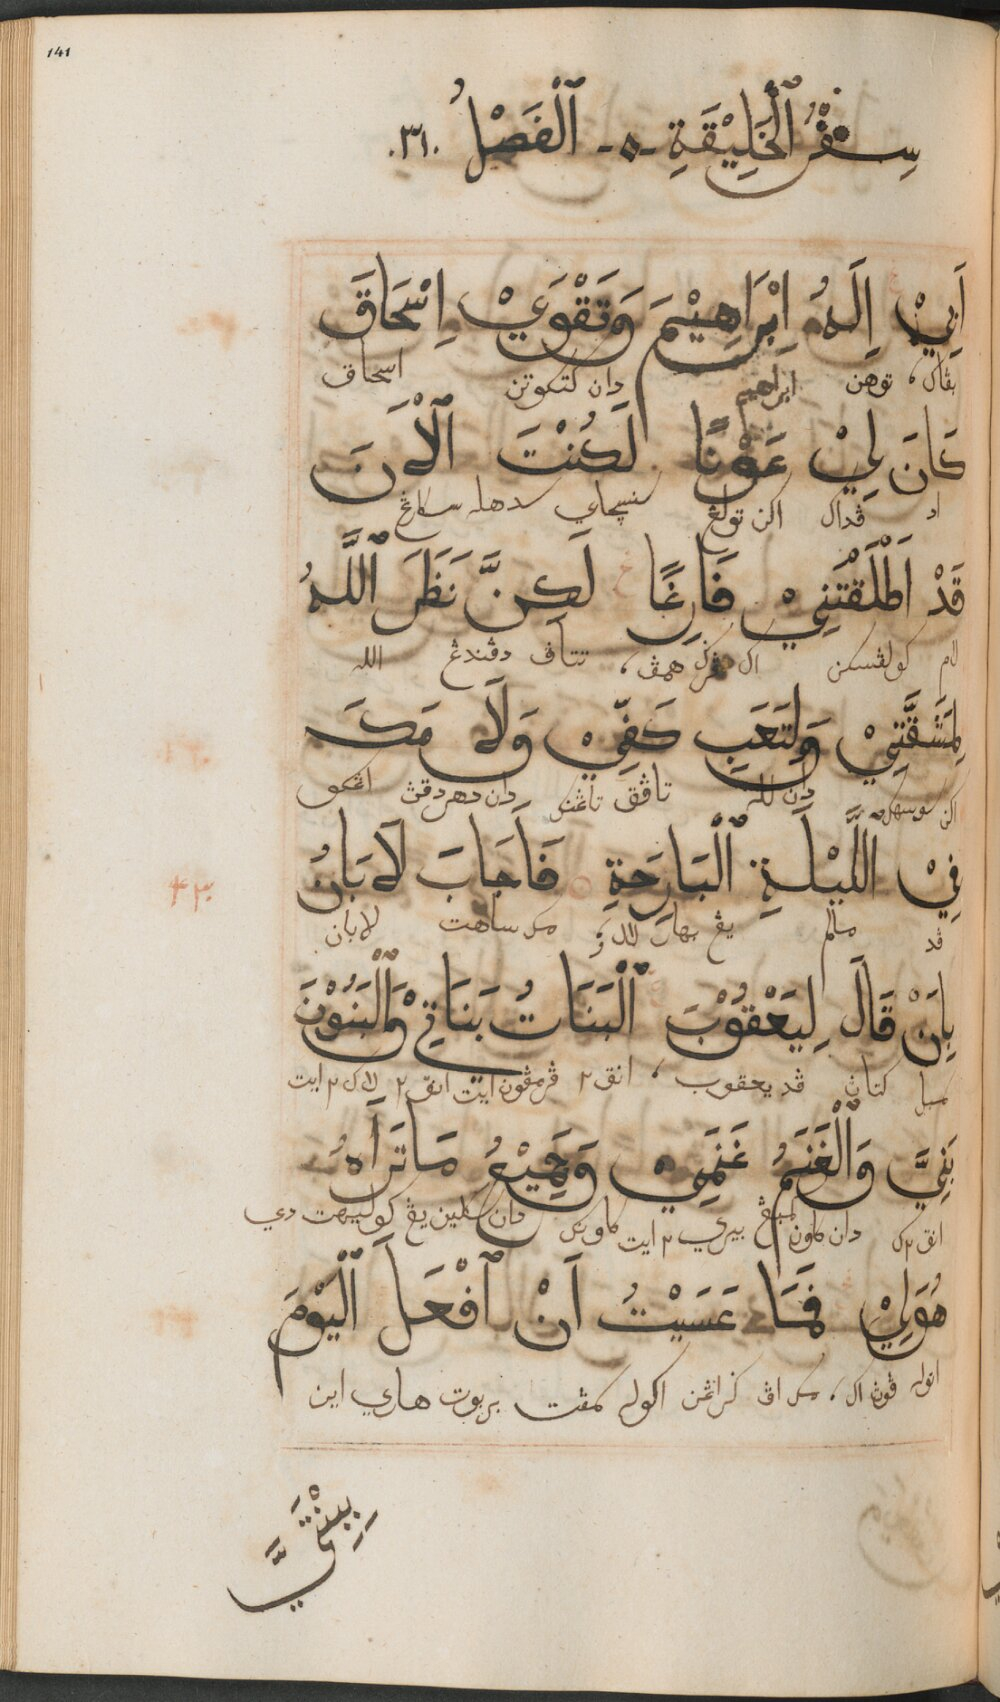 141
سِفْرُ ٱلْخَلِيْقَةِ - ٱلْفَصْلُ .٣١.
اَبِيْ اِلَهُ اِبْرَاهِيْمَ وَتَقْوَيْ اِسْحَاقَ
بڤاك، توهن ابراهيم دان كتكوتن اسحاق
كَانَ لِيْ عَوْنًا لَكُنْتَ ٱلْاَنَ
اد ڤداك اكن تولڠ سدهله سكارڠ
قَدْ اَطْلَقْتَنِيْ فَارِغًا لَكِنَّ نَظَرَ ٱللَّهُ
كولڤسكن اك همڤ، تتاڤ دڤندڠ الله
لِمَشَقَّتِيْ وَلِتَعَبِ كَفِّيْ وَلَامَكَ
اكن دان لله تاڤق تاڠنك دان اڠكو
فِيْ ٱللَّيْلَةِ ٱلْبَارِحَةِ فَاَجَابَ لَابَانُ
ڤد مالم يڠ بهارو لالو، مك ساهت لابان
.٤٣
بِاَنْ قَالَ لِيَعْقُوْبَ ٱلْبَنَاتُ بَنَاتِيْ وَٱلْبَنُوْنَ
سمبل كتاڽ ڤد يعقوب، انق٢ ڤرمڤون ايت انق٢ لاك٢ ايت
بَنِيَّ وَٱلْغَنَمُ غَنَمِيْ وَجَمِيْعُ مَا تَرَاهُ
انق٢ك دان كاون كمبڠ بيري٢ ايت كاونك دان سكلين يڠ كوليهت دي
هُوَ لِيْ فَمَا عَسَيْتُ اَنْ ٱفْعَلَ ٱلْيَوْمَ
ايتوله ڤوڽ اك، مك اڤ كراڠن اكوله بربوت هاري اين
بِبِنْتَيَّ